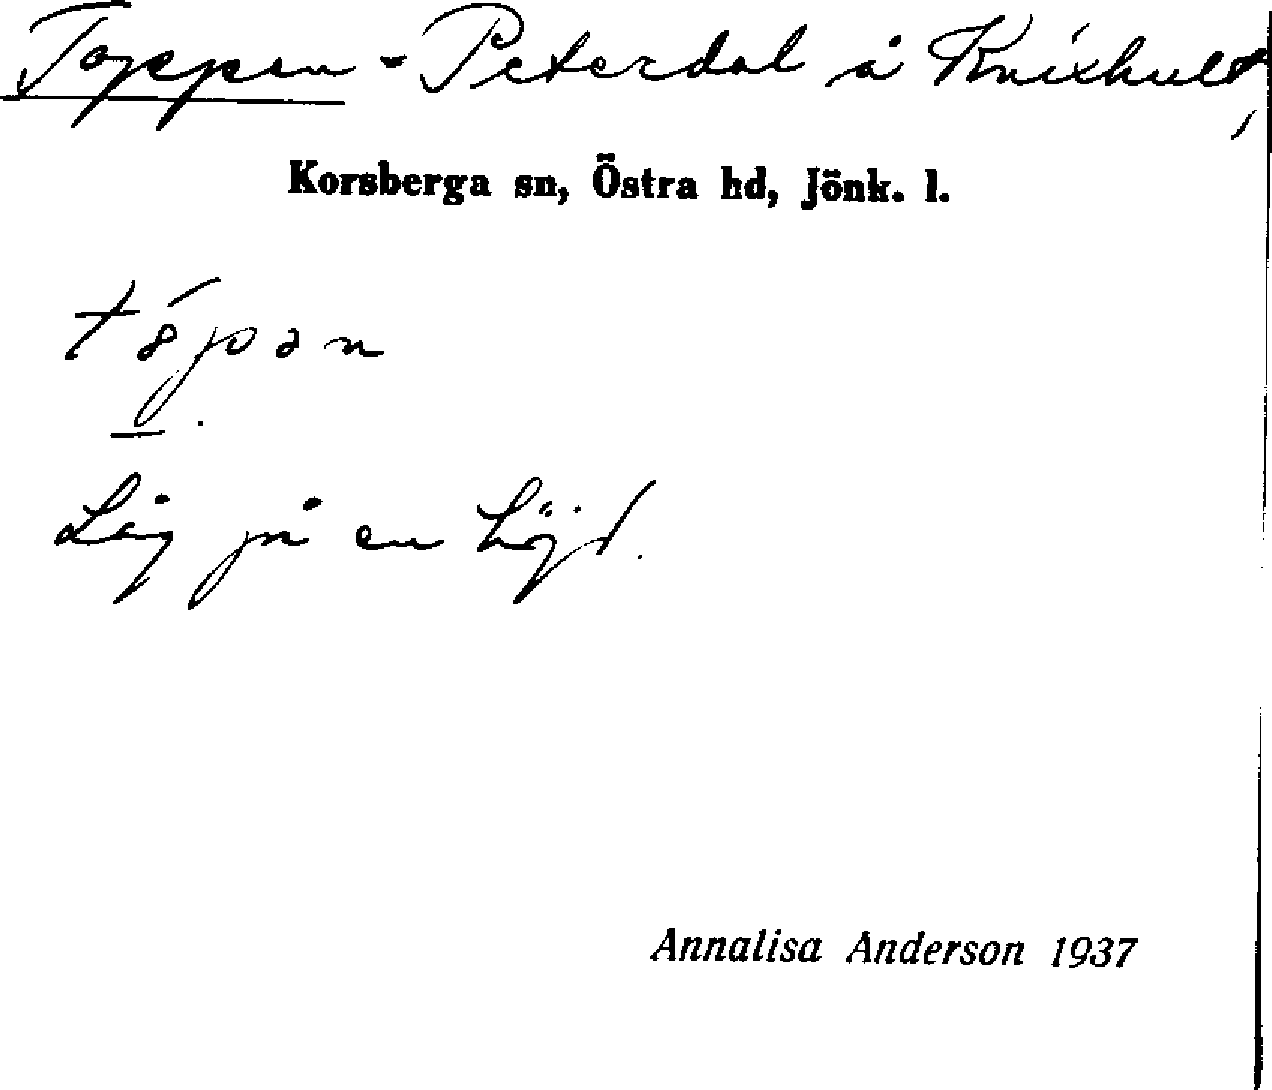 Toppen - Peterdal å Knixhult,
Korsberga sn, Östra hd, Jönk. l.
tópan
Låg på en höjd.
Annalisa Anderson 1937